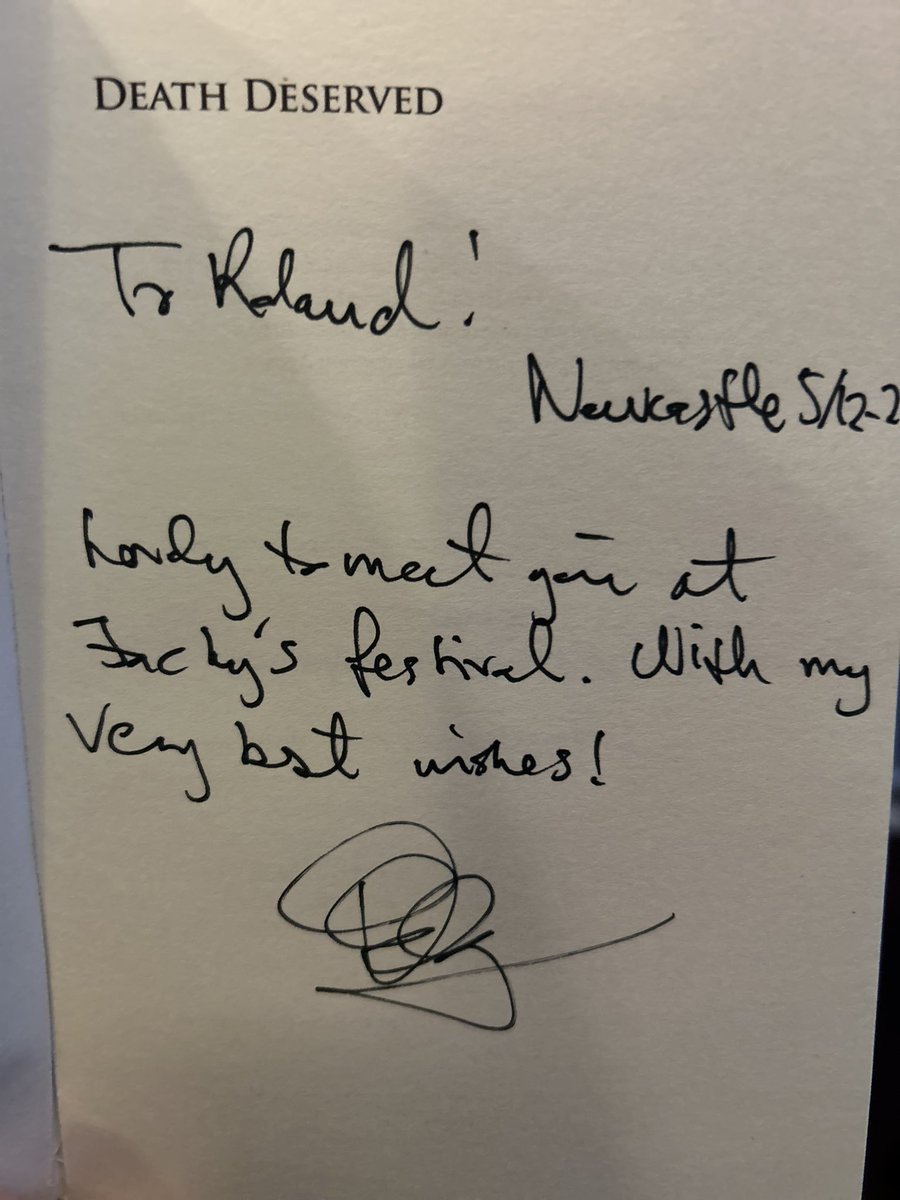 DEATH DESERVED
To Roland!
Newcastle 5/12-2
Lovely to meet you at
Jacky's festival. With my
very best wishes!